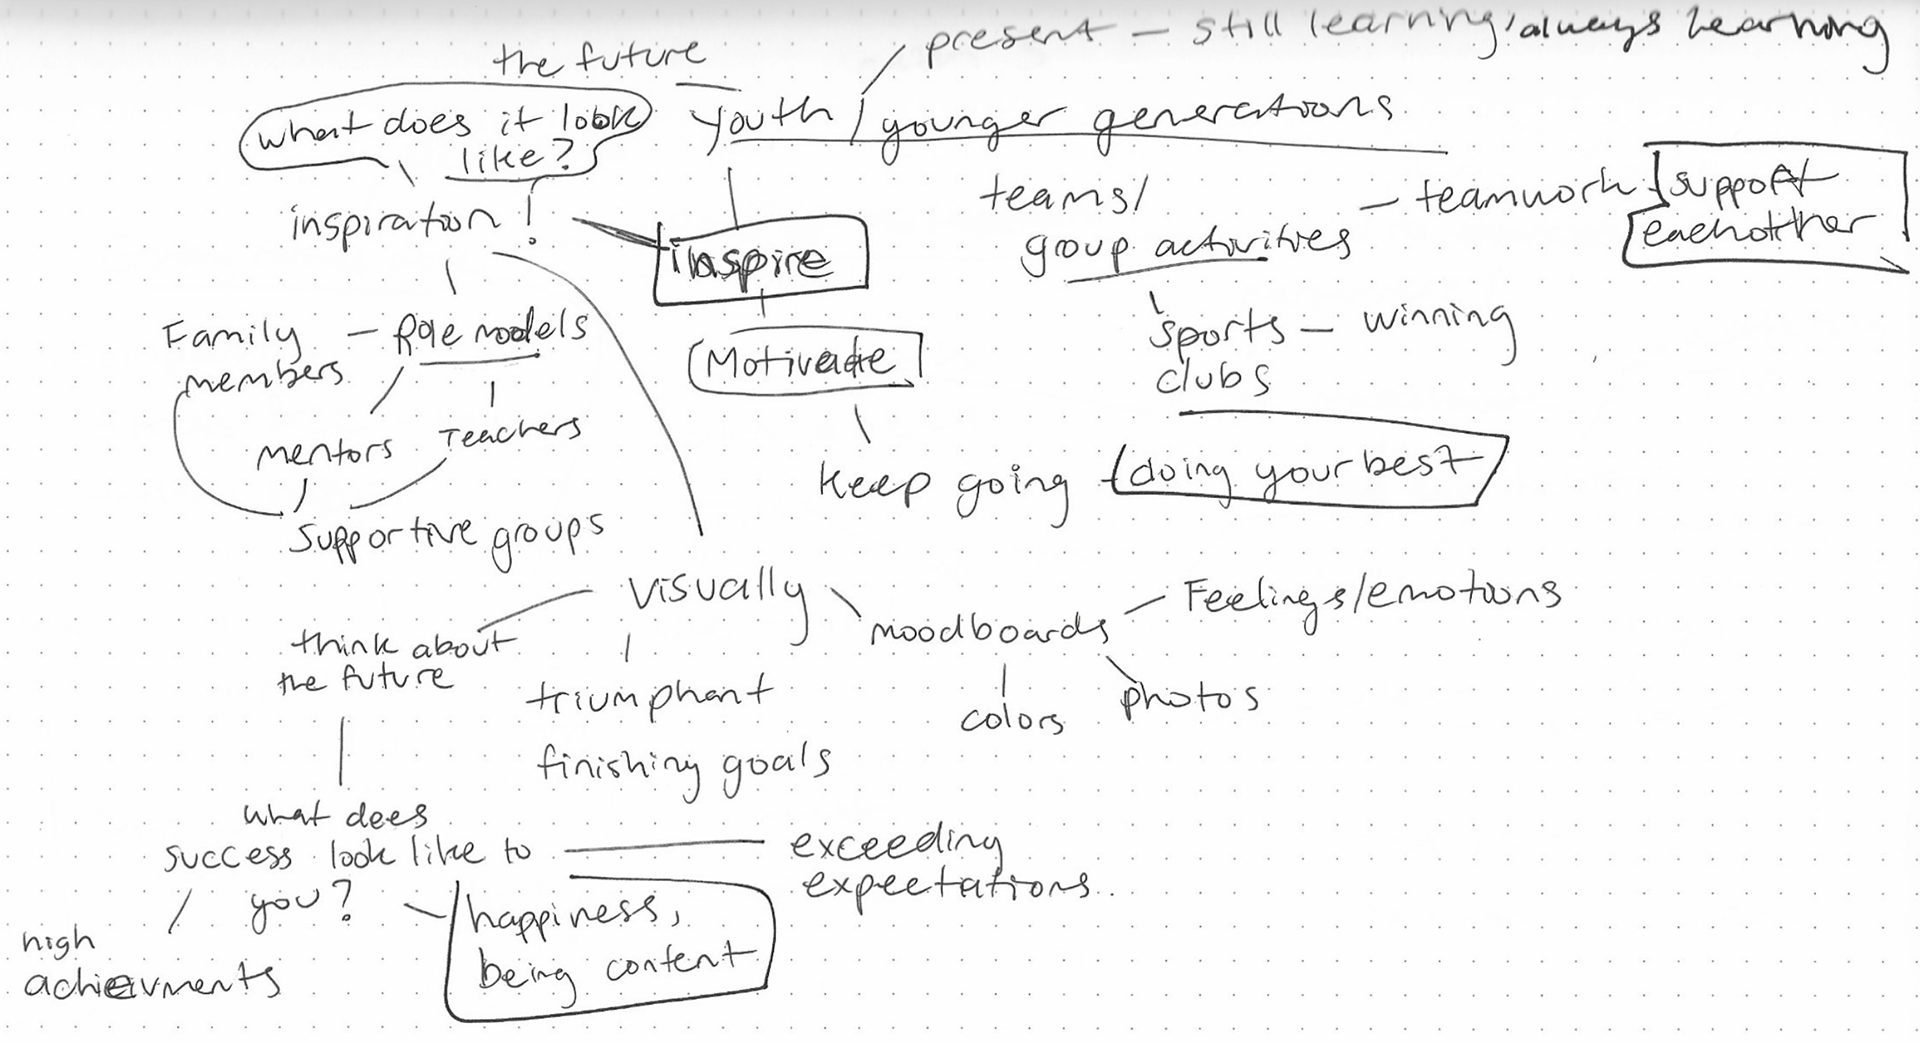 present – still learning, always learning
the future
youth / younger generations
what does it look
like?
inspiration!
inspire
Motivate
keep going
doing your best
teams/
group activities
– teamwork
support
eachother
sports – winning
clubs
Family – Role models
members
mentors
Teachers
supportive groups
visually
think about
the future
triumphant
finishing goals
moodboards
Feelings/emotions
colors
photos
what does
success look like to
you?
exceeding
expectations
happiness,
being content
high
achievments